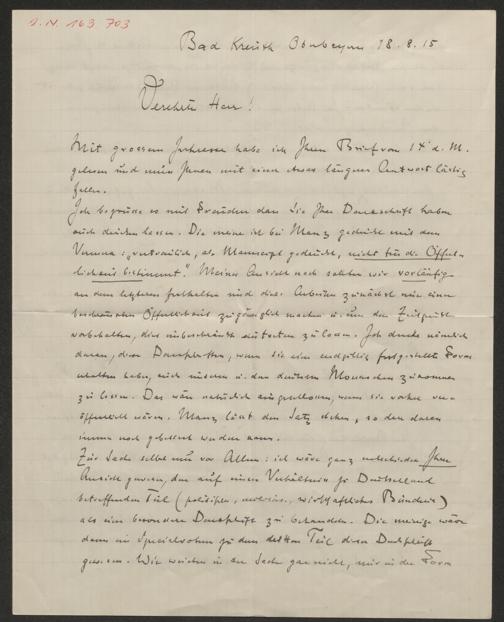 J.N. 163 703
Bad Kreuth Oberbayern 18.8.15
Verehrter Herr!
Mit grossem Interesse habe ich Ihren Brief vom 14 d. M.
gelesen und muss Ihnen mit einer etwas längeren Antwort lästig
fallen.
Ich begrüsse es mit Freuden dass Sie Ihre Denkschrift haben
auch drucken lassen. Die meine ist bei Manz gedruckt mit dem
Vermerk: „vertraulich, als Manuscript gedruckt, nicht für die Öffent-
lichkeit bestimmt". Meiner Ansicht nach sollten wir vorläufig
an dem letzteren festhalten und diese Arbeiten zunächst nur einer
beschränkten Öffentlichkeit zugänglich machen u. uns den Zeitpunkt
vorbehalten, dies unbeschränkt eintreten zu lassen. Ich denke nämlich
daran, diese Denkschriften, wenn sie eine endgiltig festgestellte Form
erhalten haben, auch unserem u. dem deutschen Monarchen zukommen
zu lassen. Das wäre natürlich ausgeschlossen, wenn sie vorher ver-
öffentlicht wären. Manz lässt den Satz stehen, so dass daran
immer noch gebessert werden kann.
Zur Sache selbst nur vor Allem: ich wäre ganz entschieden Ihrer
Ansicht gewesen, den auf unser Verhältnis zu Deutschland
betreffenden Teil (politisches, militär., wirtschaftliches Bündnis)
als eine besondere Denkschrift zu behandeln. Die meinige wäre
dann ein Specialvotum zu dem dritten Teil dieser Denkschrift
gewesen. Wir weichen in der Sache gar nicht, nur in der Form